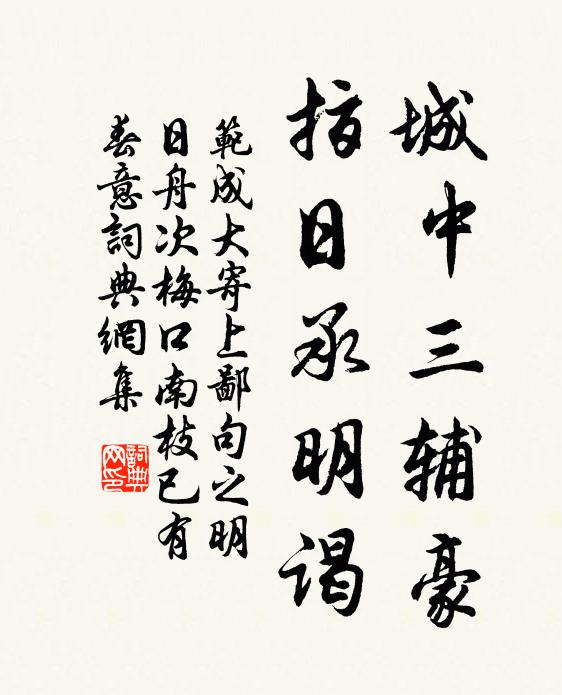 城中三辅豪
指日承明谒
範成大寄上鄙句之明
日舟次梅口南枝已有
春意詞典網集
詞典
网印